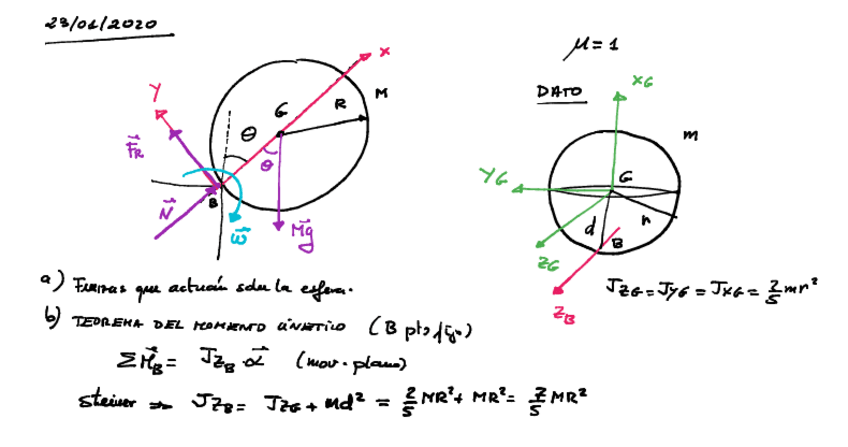 23/01/2020
μ = 1
DATO
X
Y
G
R
M
θ
θ
F⃗R
N⃗
B
ω⃗
Mg⃗
XG
m
YG
G
r
d
B
ZG
ZB
JZG = JYG = JXG = 2/5 mr²
a) Fuerzas que actúan sobre la esfera.
b) TEOREMA DEL MOMENTO CINÉTICO (B pto fijo)
ΣM⃗B = JZB · α⃗ (mov. plano)
Steiner ⇒ JZB = JZG + Md² = 2/5 MR² + MR² = 7/5 MR²